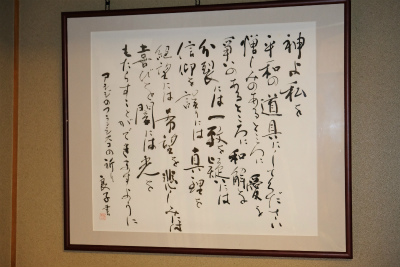 神よ私を
平和の道具にしてください
憎しみのあるところに愛を
争いのあるところに和解を
分裂には一致を疑いには
信仰を誤りには真理を
絶望には希望を悲しみには
喜びを闇には光を
もたらすことができますように
アシジのフランシスコの祈り
良子書